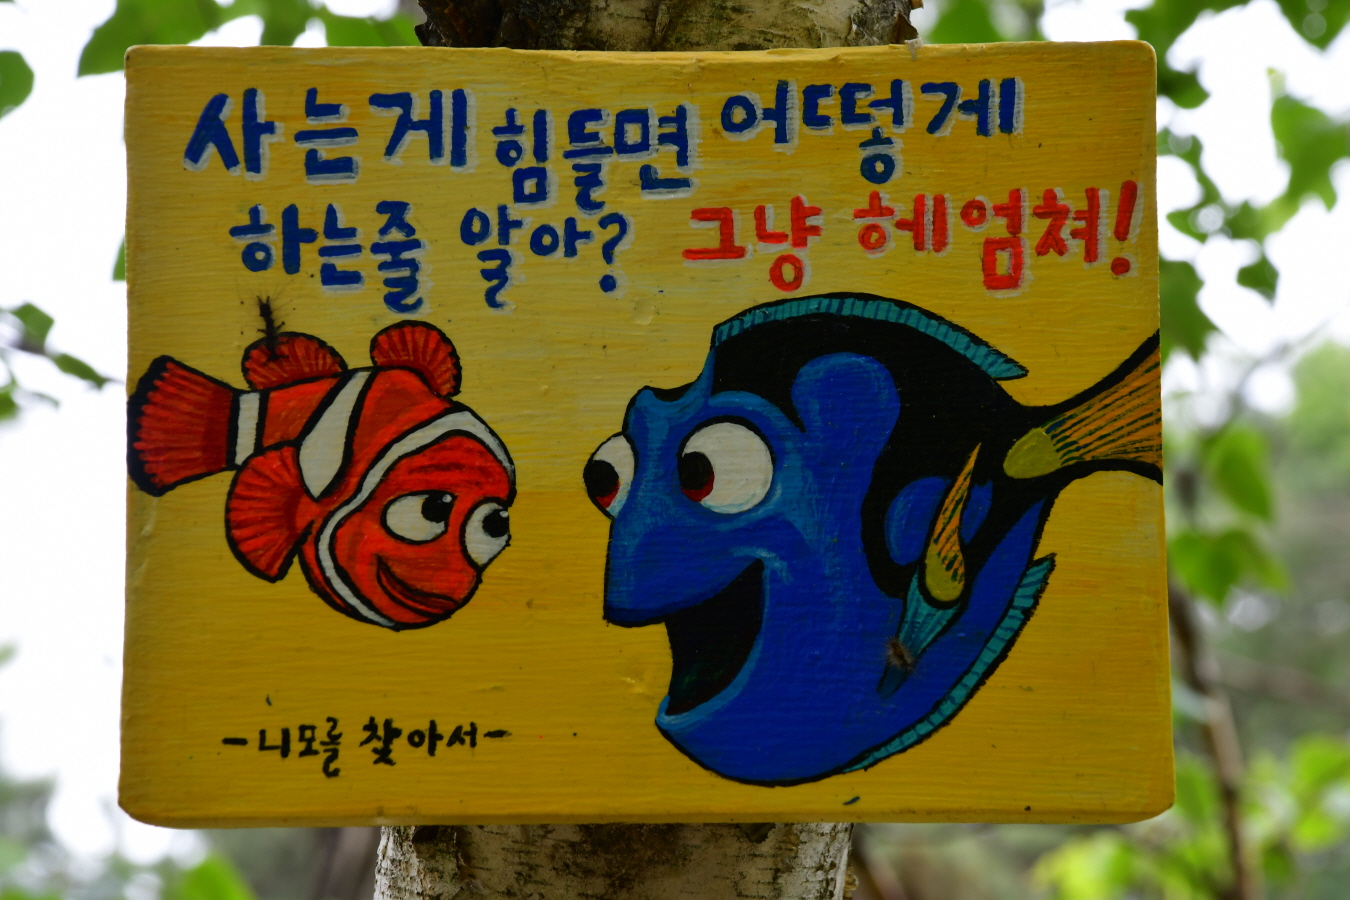 사는게 힘들면 어떻게
하는줄 알아? 그냥 헤엄쳐!
-니모를 찾아서-